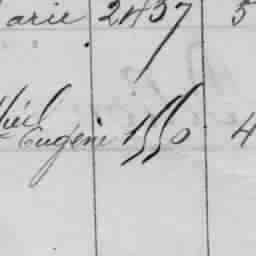 arie 2437 5
Eugène 1550 4